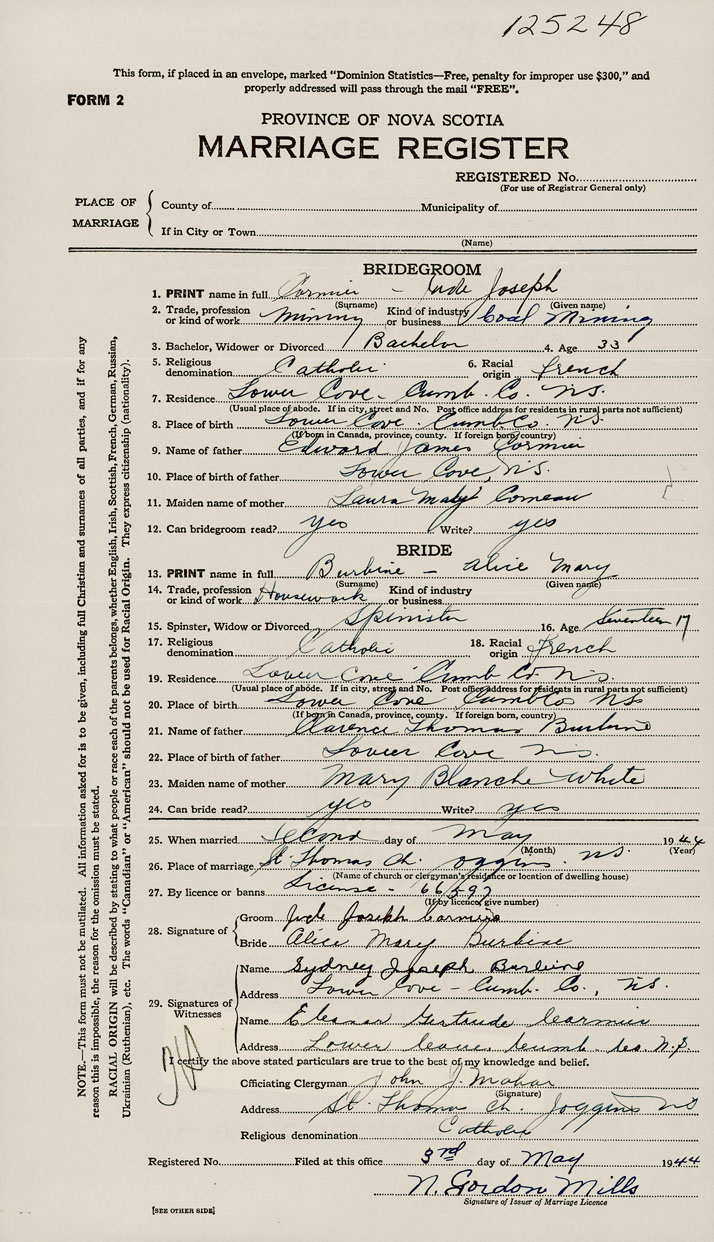 125248
This form, if placed in an envelope, marked "Dominion Statistics—Free, penalty for improper use $300," and
properly addressed will pass through the mail "FREE".
FORM 2
PROVINCE OF NOVA SCOTIA
MARRIAGE REGISTER
REGISTERED No.
(For use of Registrar General only)
PLACE OF MARRIAGE
County of Municipality of
If in City or Town
(Name)
BRIDEGROOM
1. PRINT name in full Cormier - Jude Joseph
(Surname) (Given name)
2. Trade, profession or kind of work Mining Kind of industry or business Coal Mining
3. Bachelor, Widower or Divorced Bachelor 4. Age 33
5. Religious denomination Catholic 6. Racial origin French
7. Residence Lower Cove - Cumb. Co. N.S.
(Usual place of abode. If in city, street and No. Post office address for residents in rural parts not sufficient)
8. Place of birth Lower Cove - Cumb Co. N.S.
(If born in Canada, province, county. If foreign born, country)
9. Name of father Edward James Cormier
10. Place of birth of father Lower Cove, N.S.
11. Maiden name of mother Laura Mary Comeau
12. Can bridegroom read? yes Write? yes
BRIDE
13. PRINT name in full Burbine - Alice Mary
(Surname) (Given name)
14. Trade, profession or kind of work Housework Kind of industry or business
15. Spinster, Widow or Divorced Spinster 16. Age Seventeen 17
17. Religious denomination Catholic 18. Racial origin French
19. Residence Lower Cove Cumb Co. N.S.
(Usual place of abode. If in city, street and No. Post office address for residents in rural parts not sufficient)
20. Place of birth Lower Cove Cumb Co NS
(If born in Canada, province, county. If foreign born, country)
21. Name of father Clarence Thomas Burbine
22. Place of birth of father Lower Cove N.S.
23. Maiden name of mother Mary Blanche White
24. Can bride read? yes Write? yes
25. When married Second day of May 1944
(Month) (Year)
26. Place of marriage St. Thomas Ch. Joggins. N.S.
(Name of church or clergyman's residence or location of dwelling house)
27. By licence or banns License - 66597
(If by licence, give number)
28. Signature of
Groom Jude Joseph Cormier
Bride Alice Mary Burbine
29. Signatures of Witnesses
Name Sydney Joseph Burbine
Address Lower Cove - Cumb. Co., N.S.
Name Eleanor Gertrude Cormier
Address Lower Cove Cumb. Co. N.S.
I certify the above stated particulars are true to the best of my knowledge and belief.
Officiating Clergyman John J. Mahar
(Signature)
Address St. Thomas Ch. Joggins NS
Religious denomination Catholic
Registered No. Filed at this office 3rd day of May 1944
N. Gordon Mills
Signature of Issuer of Marriage Licence
[SEE OTHER SIDE]
NOTE.—This form must not be mutilated. All information asked for is to be given, including full Christian and surnames of all parties, and if for any
reason this is impossible, the reason for the omission must be stated.
RACIAL ORIGIN will be described by stating to what people or race each of the parents belongs, whether English, Irish, Scottish, French, German, Russian,
Ukrainian (Ruthenian), etc. The words "Canadian" or "American" should not be used for Racial Origin. They express citizenship (nationality).